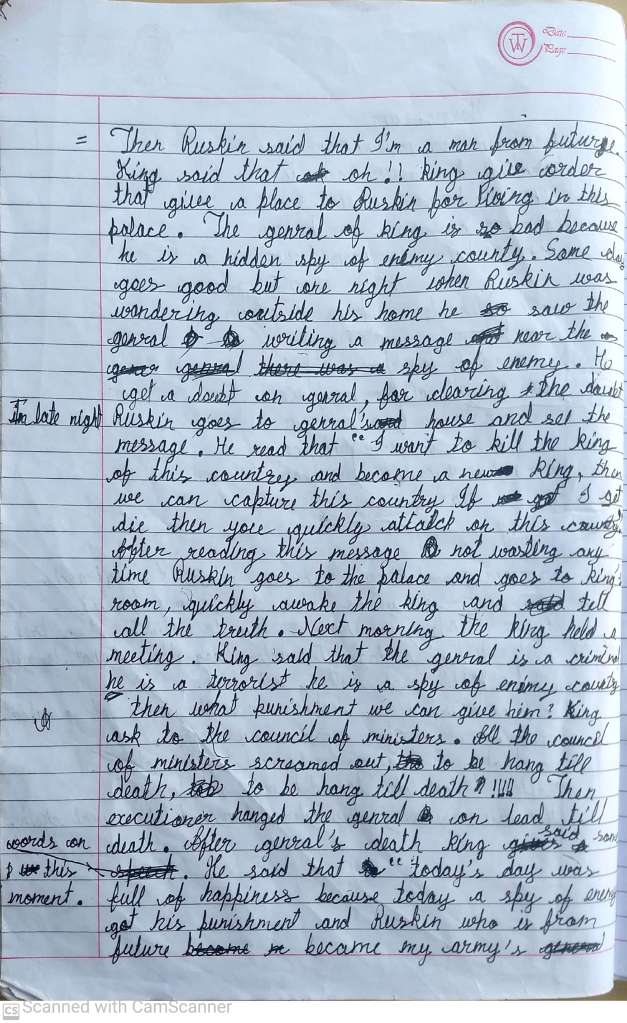 TW
Date
Page
= Then Ruskin said that I'm a man from future.
King said that oh !! king give order
that give a place to Ruskin for living in this
palace. The genral of king is so bad because
he is a hidden spy of enemy county. Some day
goes good but one night when Ruskin was
wandering outside his home he saw the
genral writing a message near the
spy of enemy. He
get a doubt on genral, for clearing the doubt
In late night Ruskin goes to genral's house and see the
message. He read that "I want to kill the king
of this country and become a new king, then
we can capture this country If I get
die then you quickly attatck on this country.
After reading this message not wasting any
time Ruskin goes to the palace and goes to king's
room, quickly awake the king and tell
all the truth. Next morning the king held a
meeting. King said that the genral is a criminal
he is a terrorist he is a spy of enimy county
then what punishment we can give him? King
ask to the council of ministers. All the council
of ministers screamed out, to be hang till
death, to be hang till death !!!! Then
executioner hanged the genral on lead till
death. After genral's death king said some
words on this moment. He said that "today's day was
full of happiness because today a spy of enemy
got his punishment and Ruskin who is from
future became my army's
CS Scanned with CamScanner